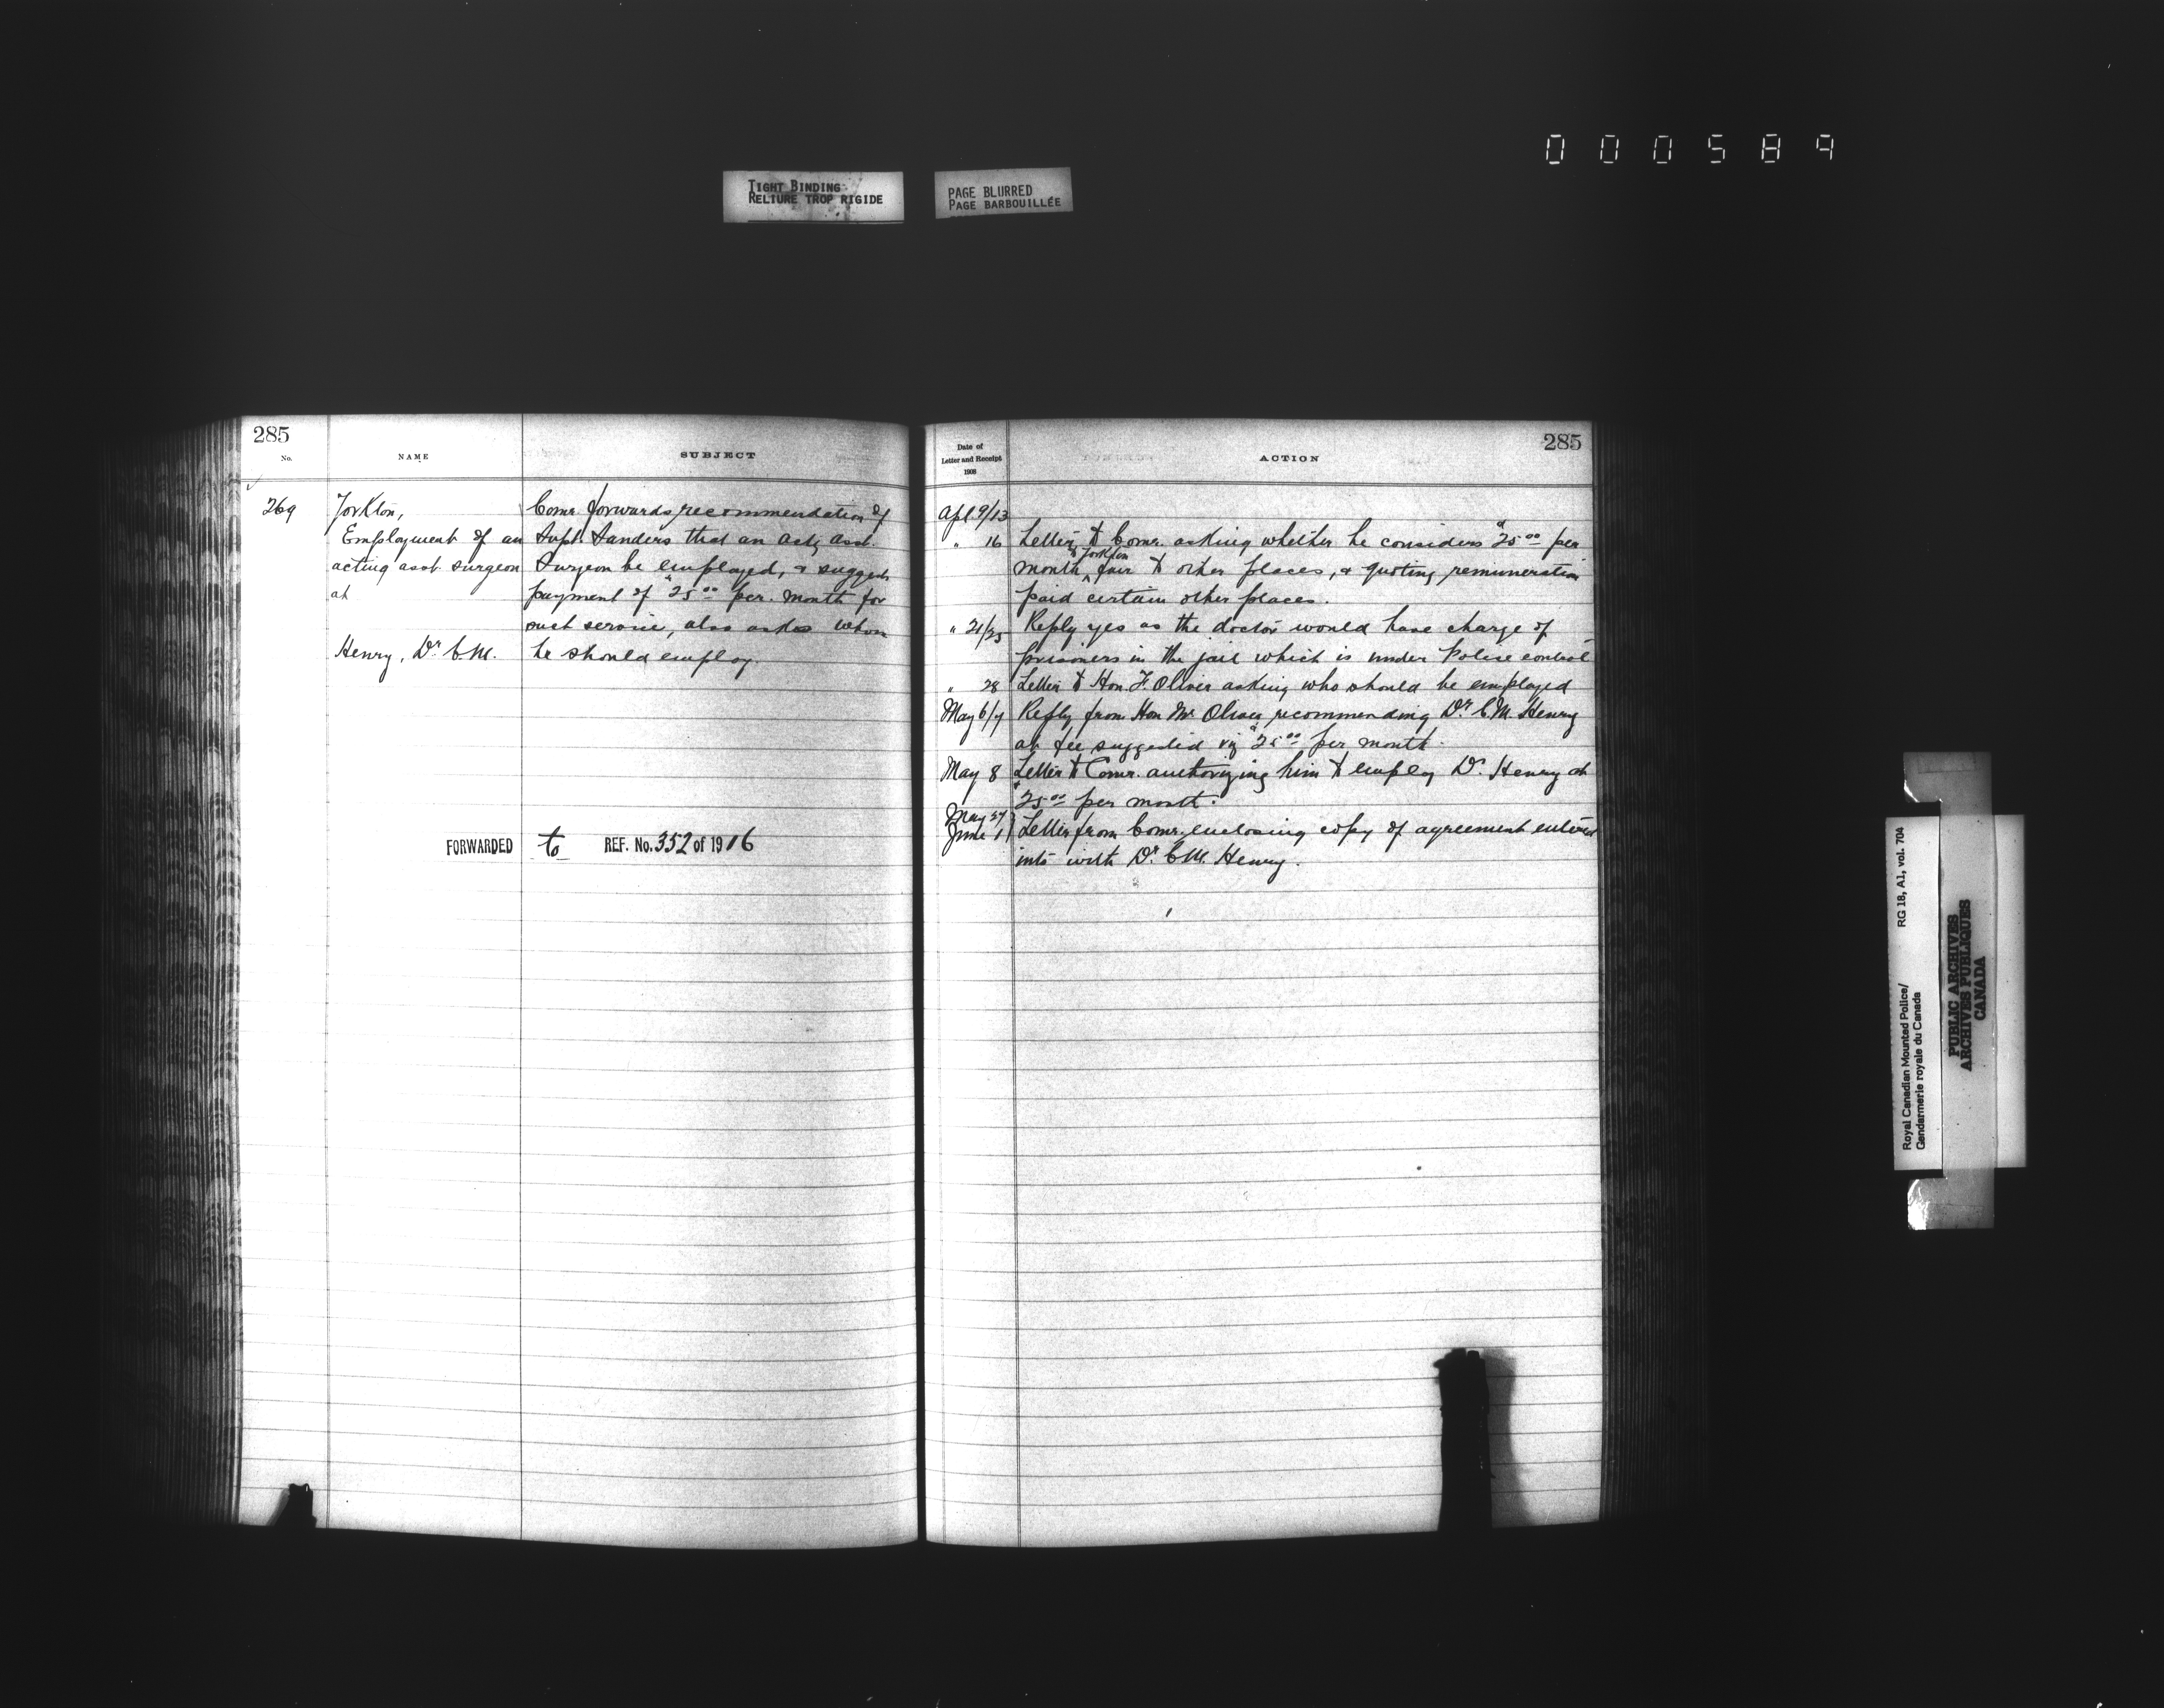 000589
TIGHT BINDING
RELIURE TROP RIGIDE
PAGE BLURRED
PAGE BARBOUILLÉE
285
No.
NAME
SUBJECT
269
Yorkton,
Employment of an
acting asst surgeon
at
Henry, Dr. C.M.
Comr. forwards recommendation of
Supt. Sanders that an actg asst.
Surgeon be employed, & suggests
payment of $25.00 per. month for
such service, also asks whom
he should employ.
FORWARDED to REF. No. 352 of 1916
Date of
Letter and Receipt
1908
ACTION
285
Apl. 9/13
" 16 Letter to Comr. asking whether he considers $25.00 per
to Yorkton
month fair to other places, & quoting remuneration
paid certain other places.
" 21/25 Reply yes as the doctor would have charge of
prisoners in the jail which is under Police control
" 28 Letter to Hon. F. Oliver asking who should be employed
May 6/7 Reply from Hon Mr Oliver recommending Dr. C.M. Henry
at fee suggested viz $25.00 per month.
May 8 Letter to Comr. authorizing him to employ Dr. Henry at
$25.00 per month.
May 27
June 1 Letter from Comr. enclosing copy of agreement entered
into with Dr. C.M. Henry.
Royal Canadian Mounted Police/
Gendarmerie royale du Canada
RG 18, A1, vol. 704
PUBLIC ARCHIVES
ARCHIVES PUBLIQUES
CANADA